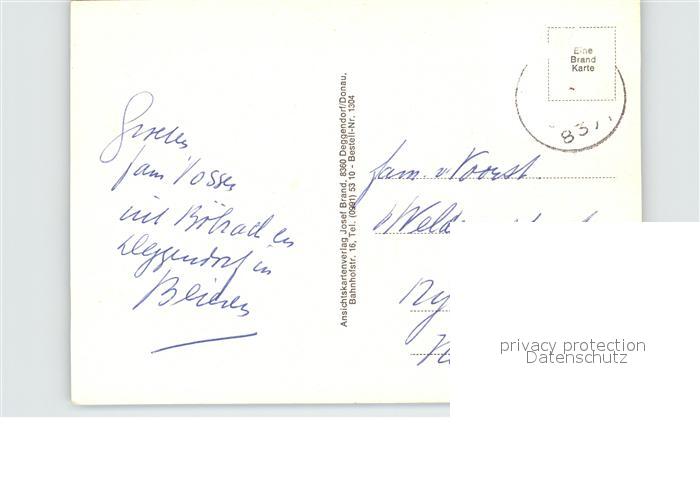 Groeten
fam Vossen
uit Böbrach en
Deggendorf in
Beieren
Ansichtskartenverlag Josef Brand, 8360 Deggendorf/Donau,
Bahnhofstr. 16, Tel. (0991) 53 10 - Bestell-Nr. 1304
Eine
Brand
Karte
837
fam. v Voorst.
Weld
Ny
privacy protection
Datenschutz